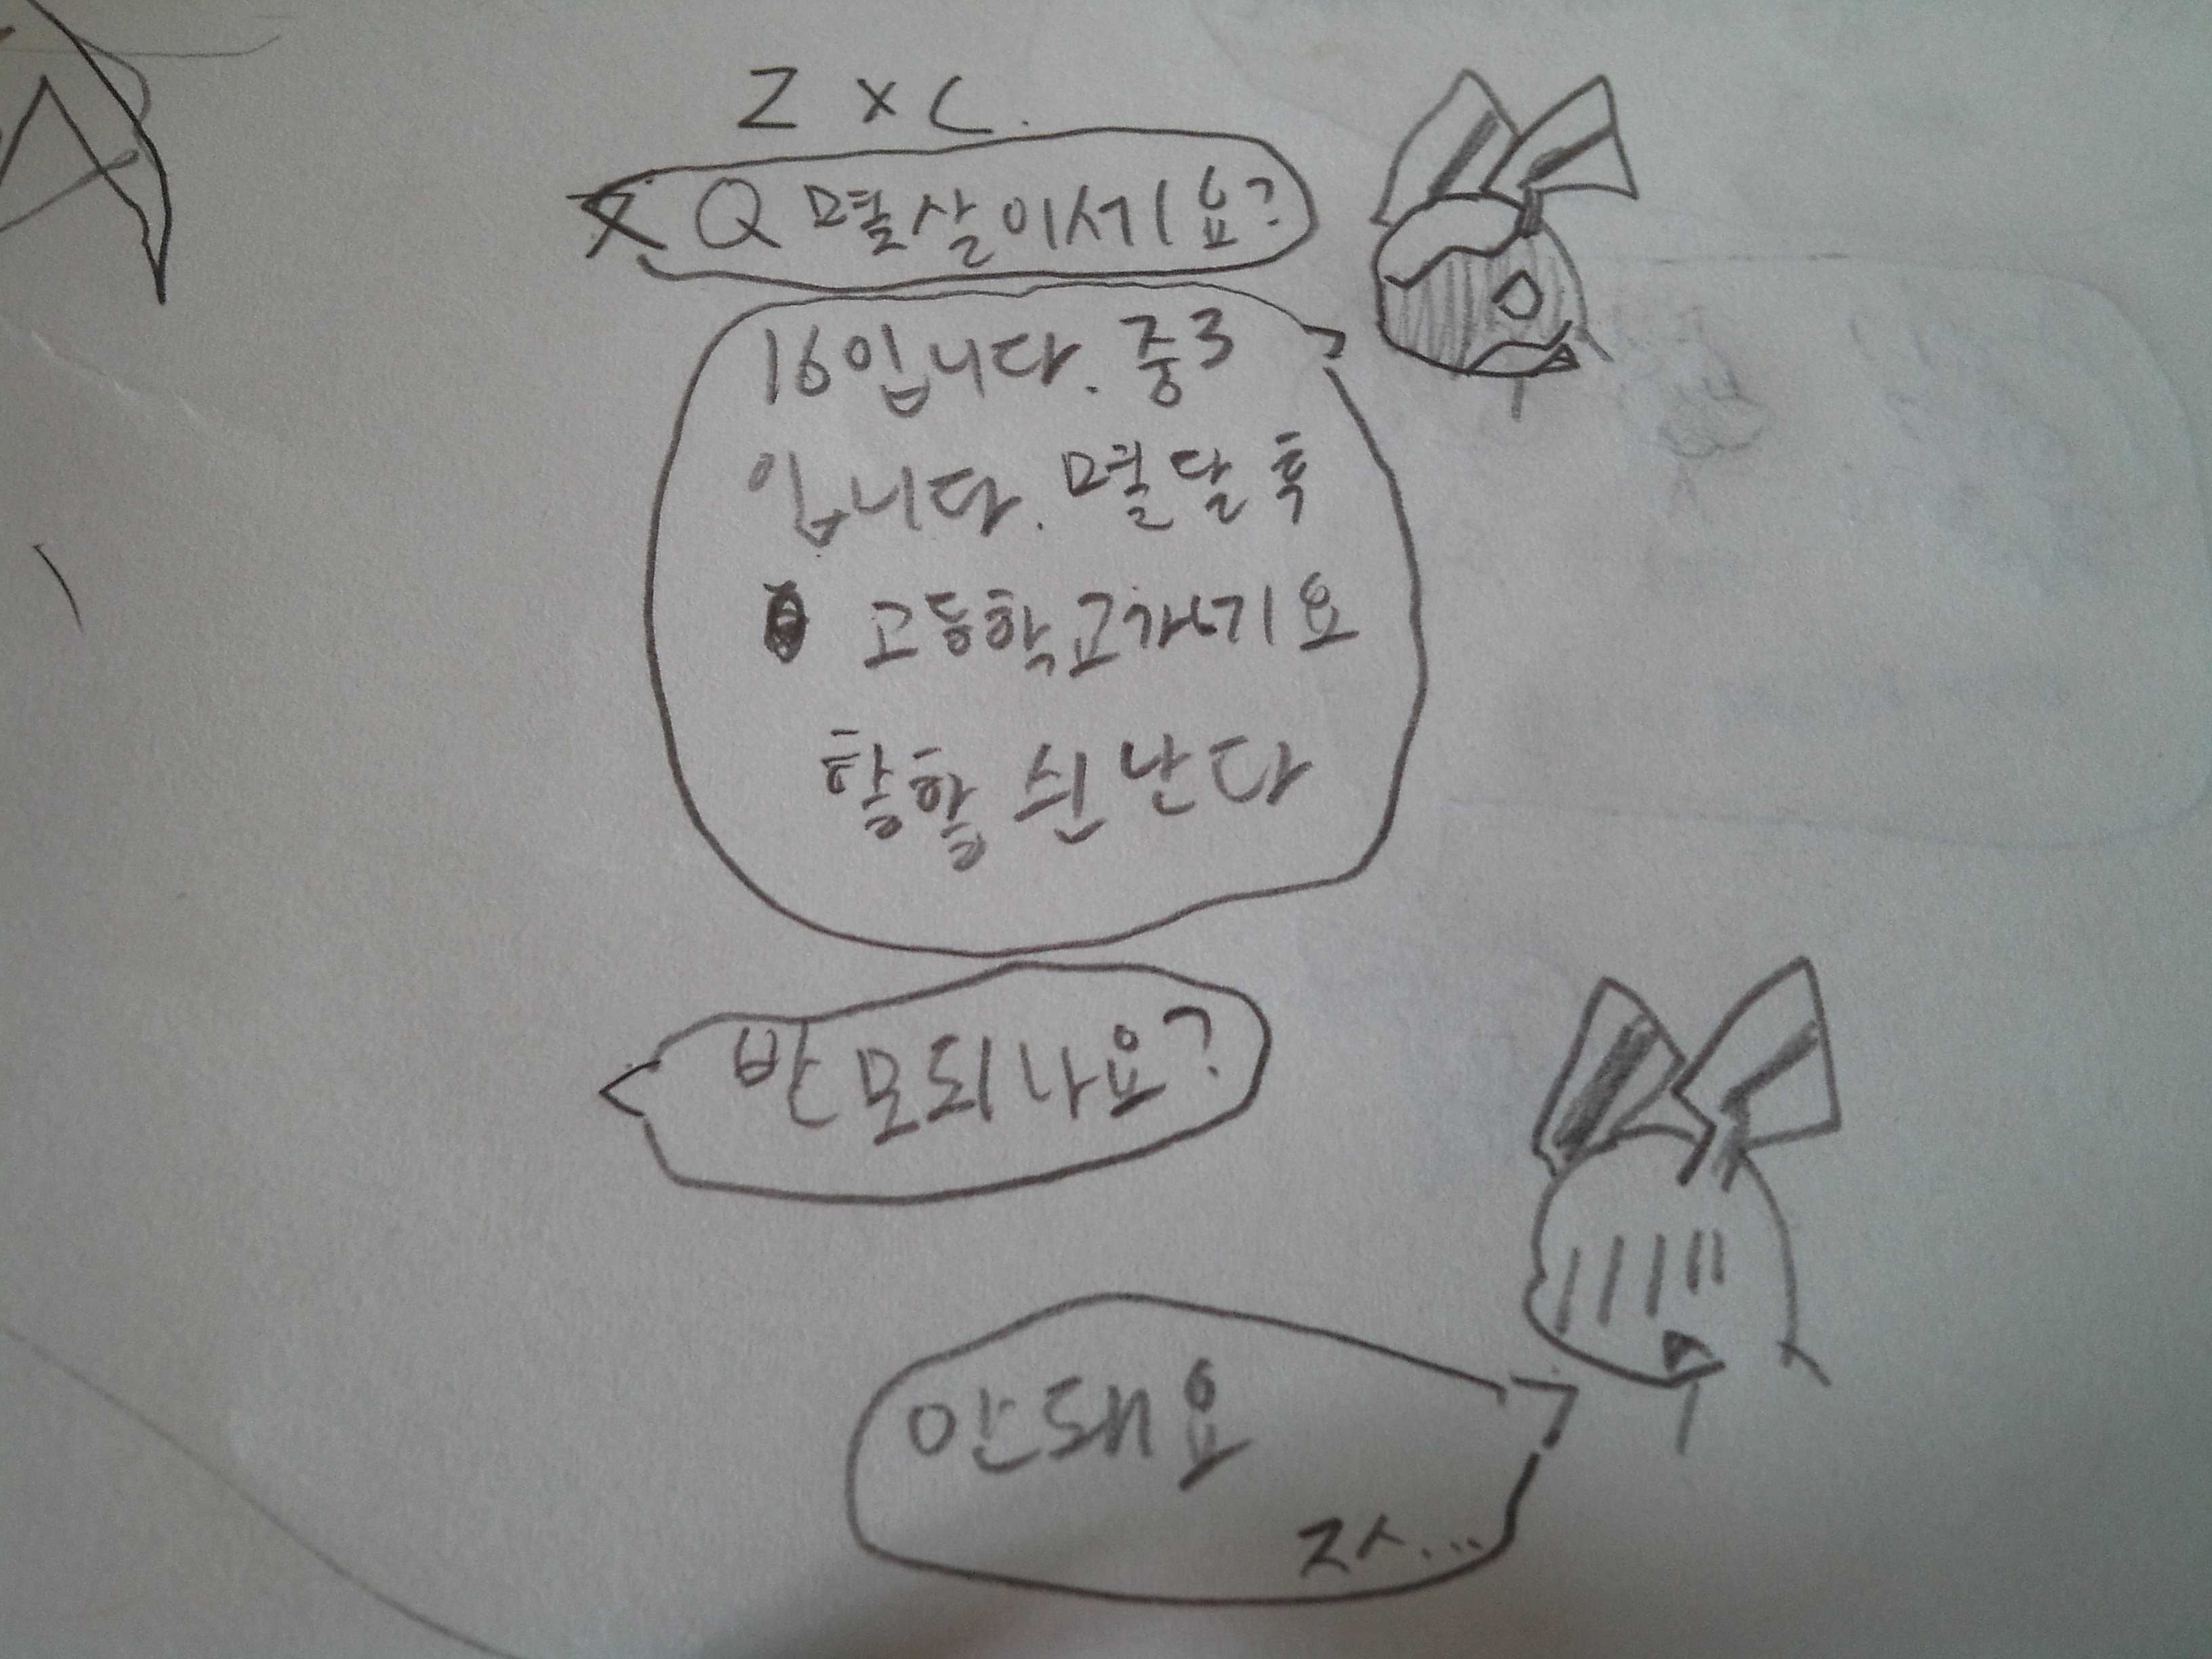 Z X C.
Q 몇살이서기요?
16입니다. 중3
입니다. 몇달후
고등학교가기요
핳핳 쉰난다
반모되나요?
안돼요
ㅈㅅ...